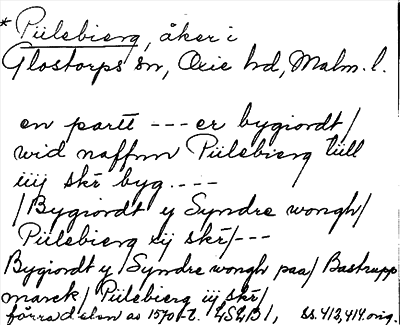 * Piilebierg, åker i
Glostorps sn, Oxie hd, Malm. l.
en partt --- er bygiordt /
wid naffnn Piilebierg till
iiij skr byg. ----
/ Bygiordt y Syndre wongh /
Piilebierg xij skr / ---
Bygiordt y / Syndre wongh paa / Bastrupp
marck / Piilebierg iij skr /
förra delen av 1570-t. LSLB 1, ss. 413, 414 orig.